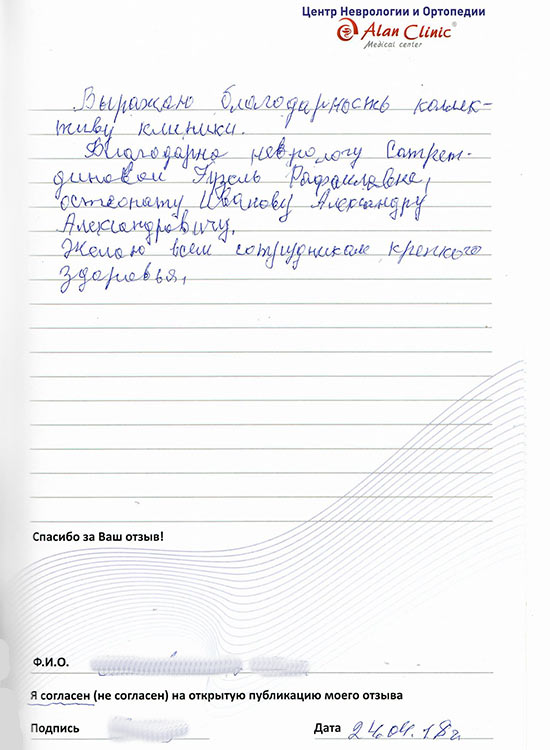 Центр Неврологии и Ортопедии
Alan Clinic®
Medical center
Выражаю благодарность коллек-
тиву клиники.
Благодарна неврологу Сатрет-
диновой Гузель Рафаиловне,
остеопату Иванову Александру
Александровичу.
Желаю всем сотрудникам крепкого
здоровья.
Спасибо за Ваш отзыв!
Ф.И.О.
Я согласен (не согласен) на открытую публикацию моего отзыва
Подпись
Дата 24.04.18г.